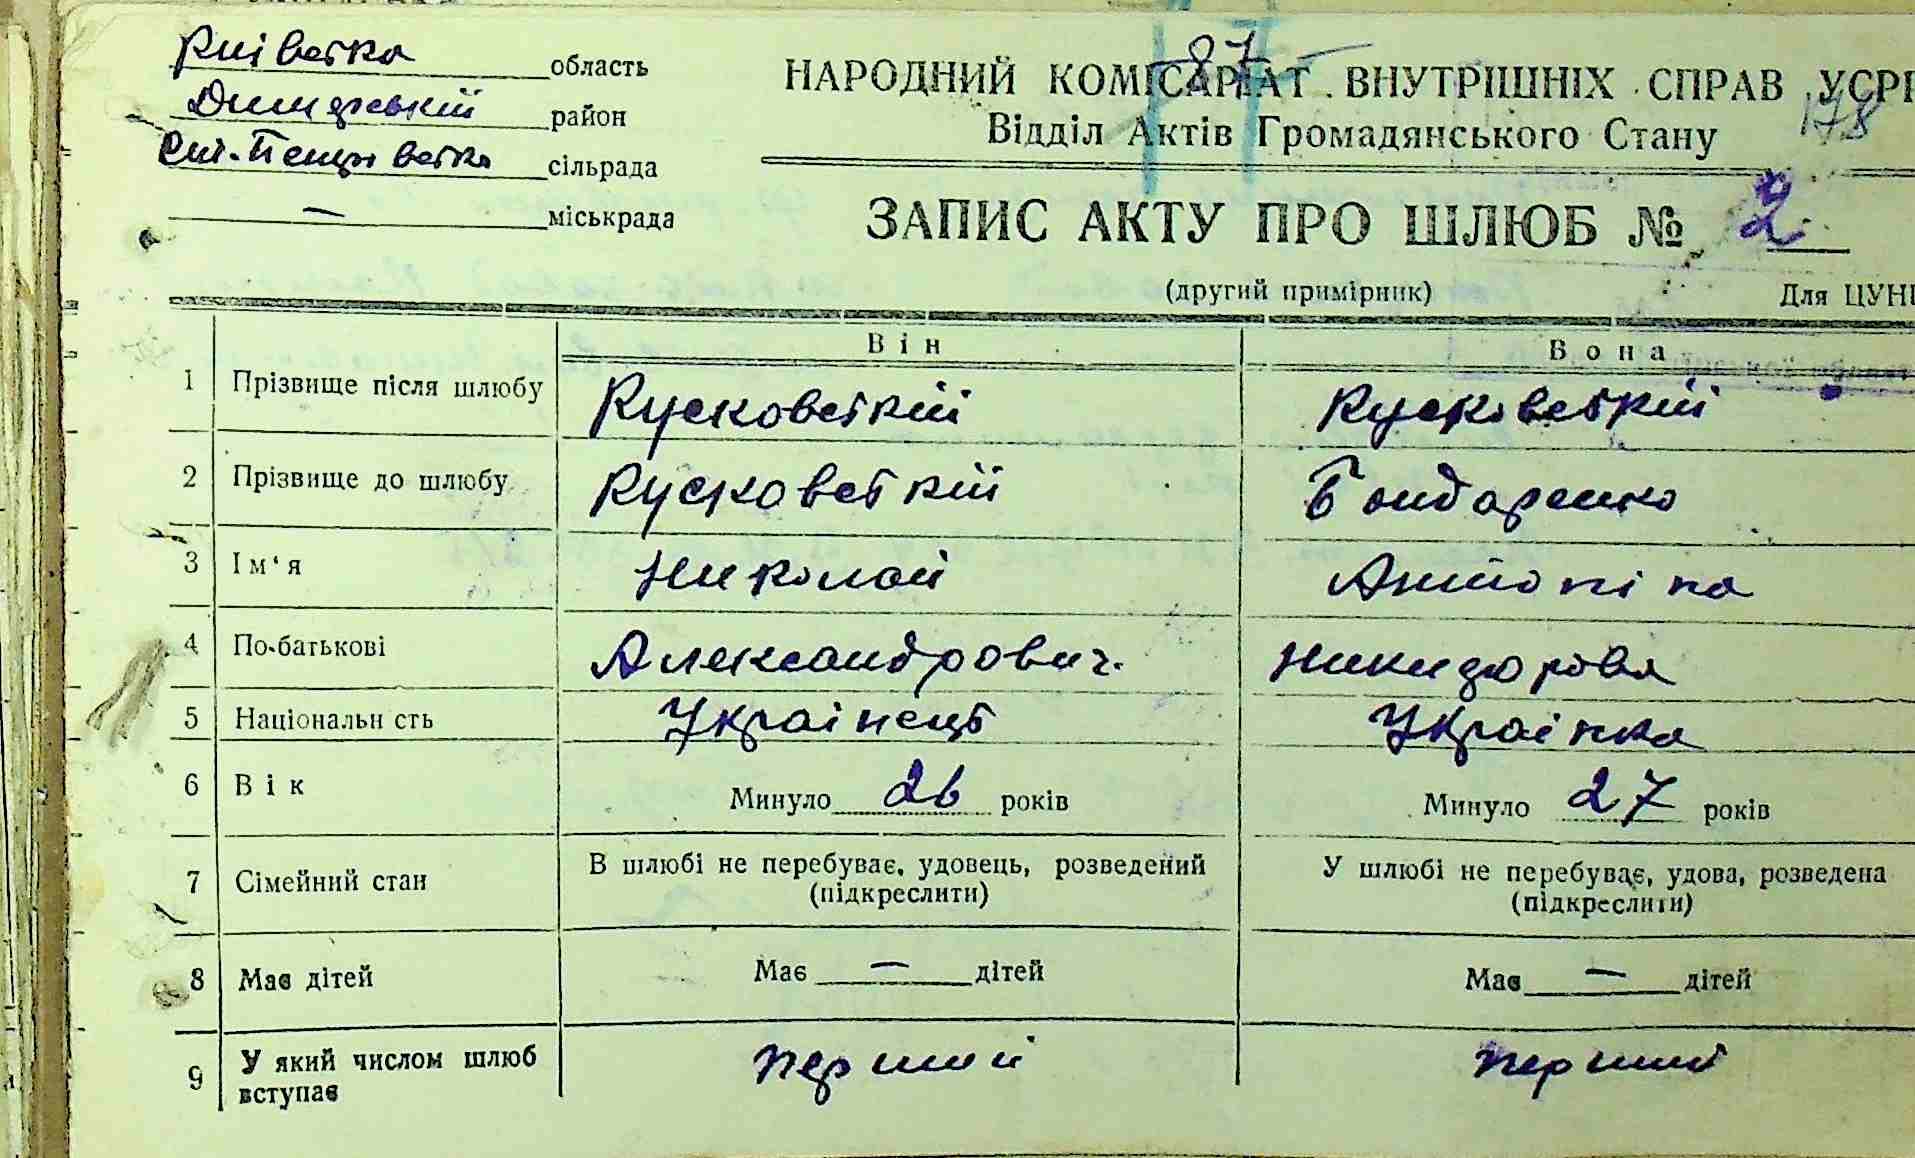 Київська область
Димерський район
Сит.-Пещрівська сільрада
— міськрада
87
178
НАРОДНИЙ КОМІСАРІАТ ВНУТРІШНІХ СПРАВ УСРР
Відділ Актів Громадянського Стану
ЗАПИС АКТУ ПРО ШЛЮБ № 2
(другий примірник)
Для ЦУНГ
Він Вона
1 Прізвище після шлюбу Русковський Русковський
2 Прізвище до шлюбу Русковський Бондаренко
3 Ім'я Николай Антоніна
4 По-батькові Александрович. Никифоровна
5 Національн сть Українець Українка
6 Вік Минуло 26 років Минуло 27 років
7 Сімейний стан В шлюбі не перебуває, удовець, розведений У шлюбі не перебуває, удова, розведена
(підкреслити) (підкреслити)
8 Має дітей Має — дітей Має — дітей
9 У який числом шлюб вступає перший перший